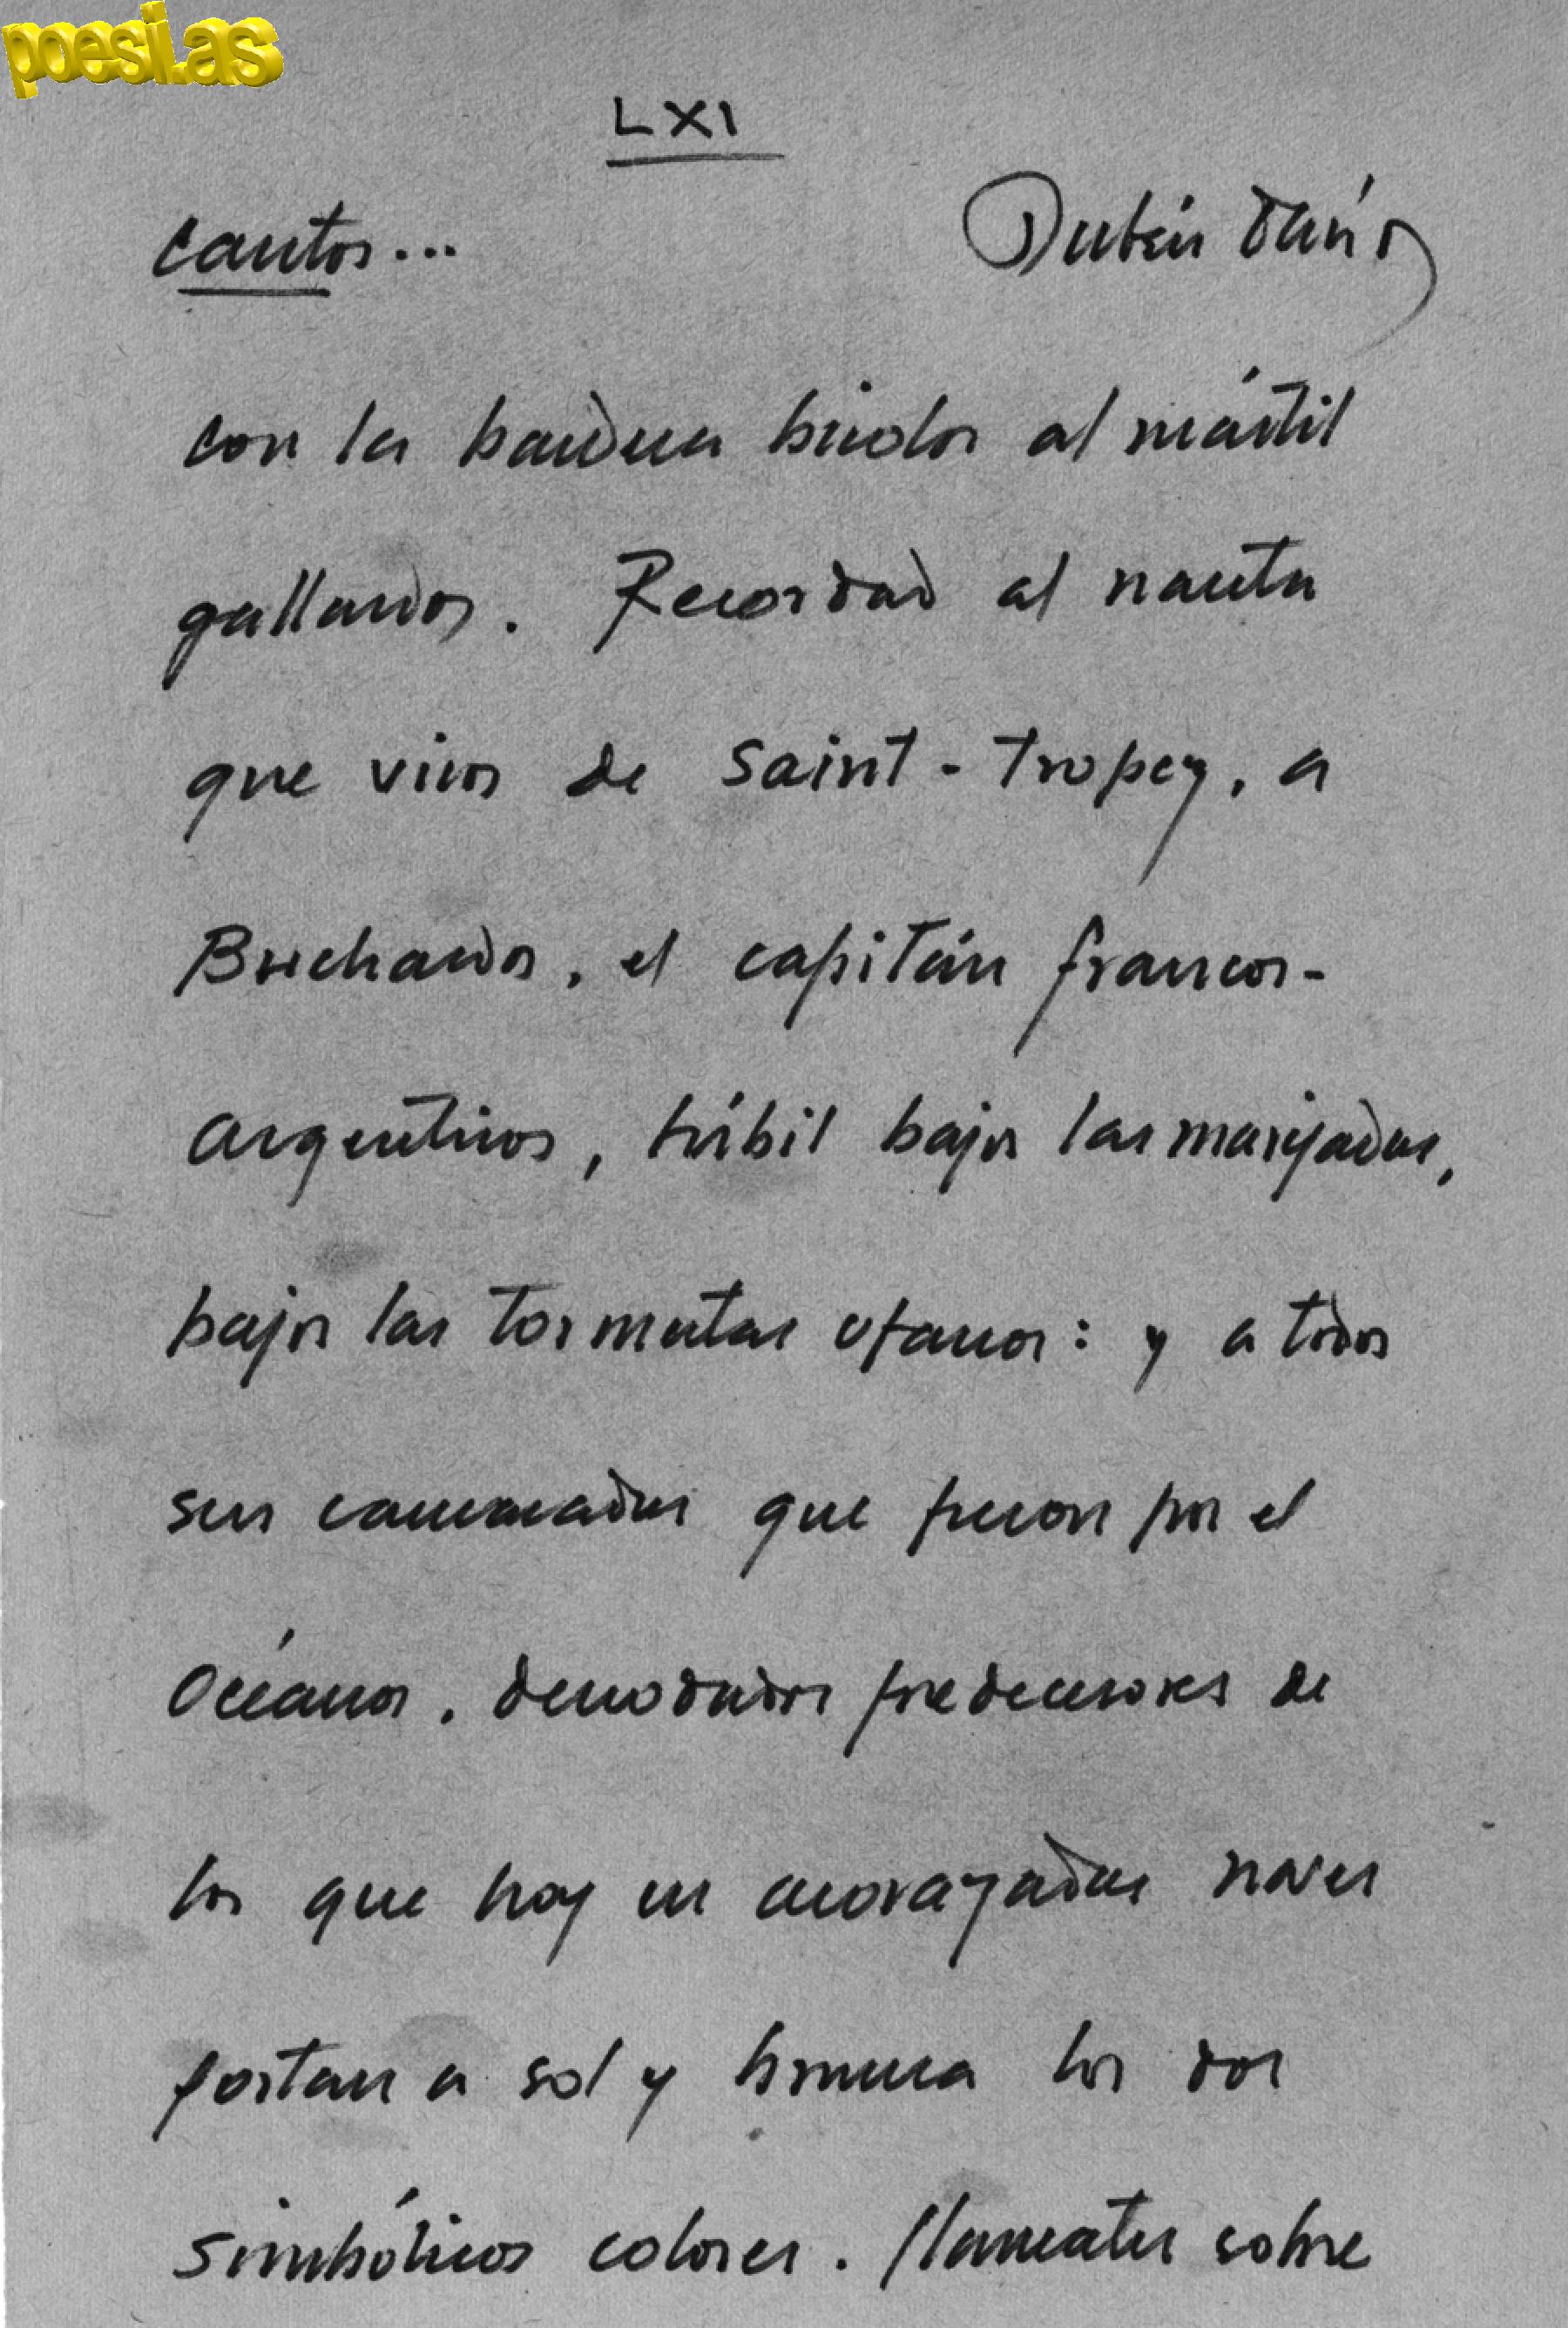 poesi.as
LXI
Cantos... Rubén Darío
con la bandera bicolor al mástil
gallardo. Recordad al nauta
que vino de Saint-Tropez, a
Buchardo, el capitán franco-
argentino, hábil bajo las marejadas,
bajo las tormentas ufano: y a todos
sus camaradas que fueron por el
Océano, denodados predecesores de
los que hoy en acorazadas naves
portan a sol y bruma los dos
simbólicos colores. llameantes sobre